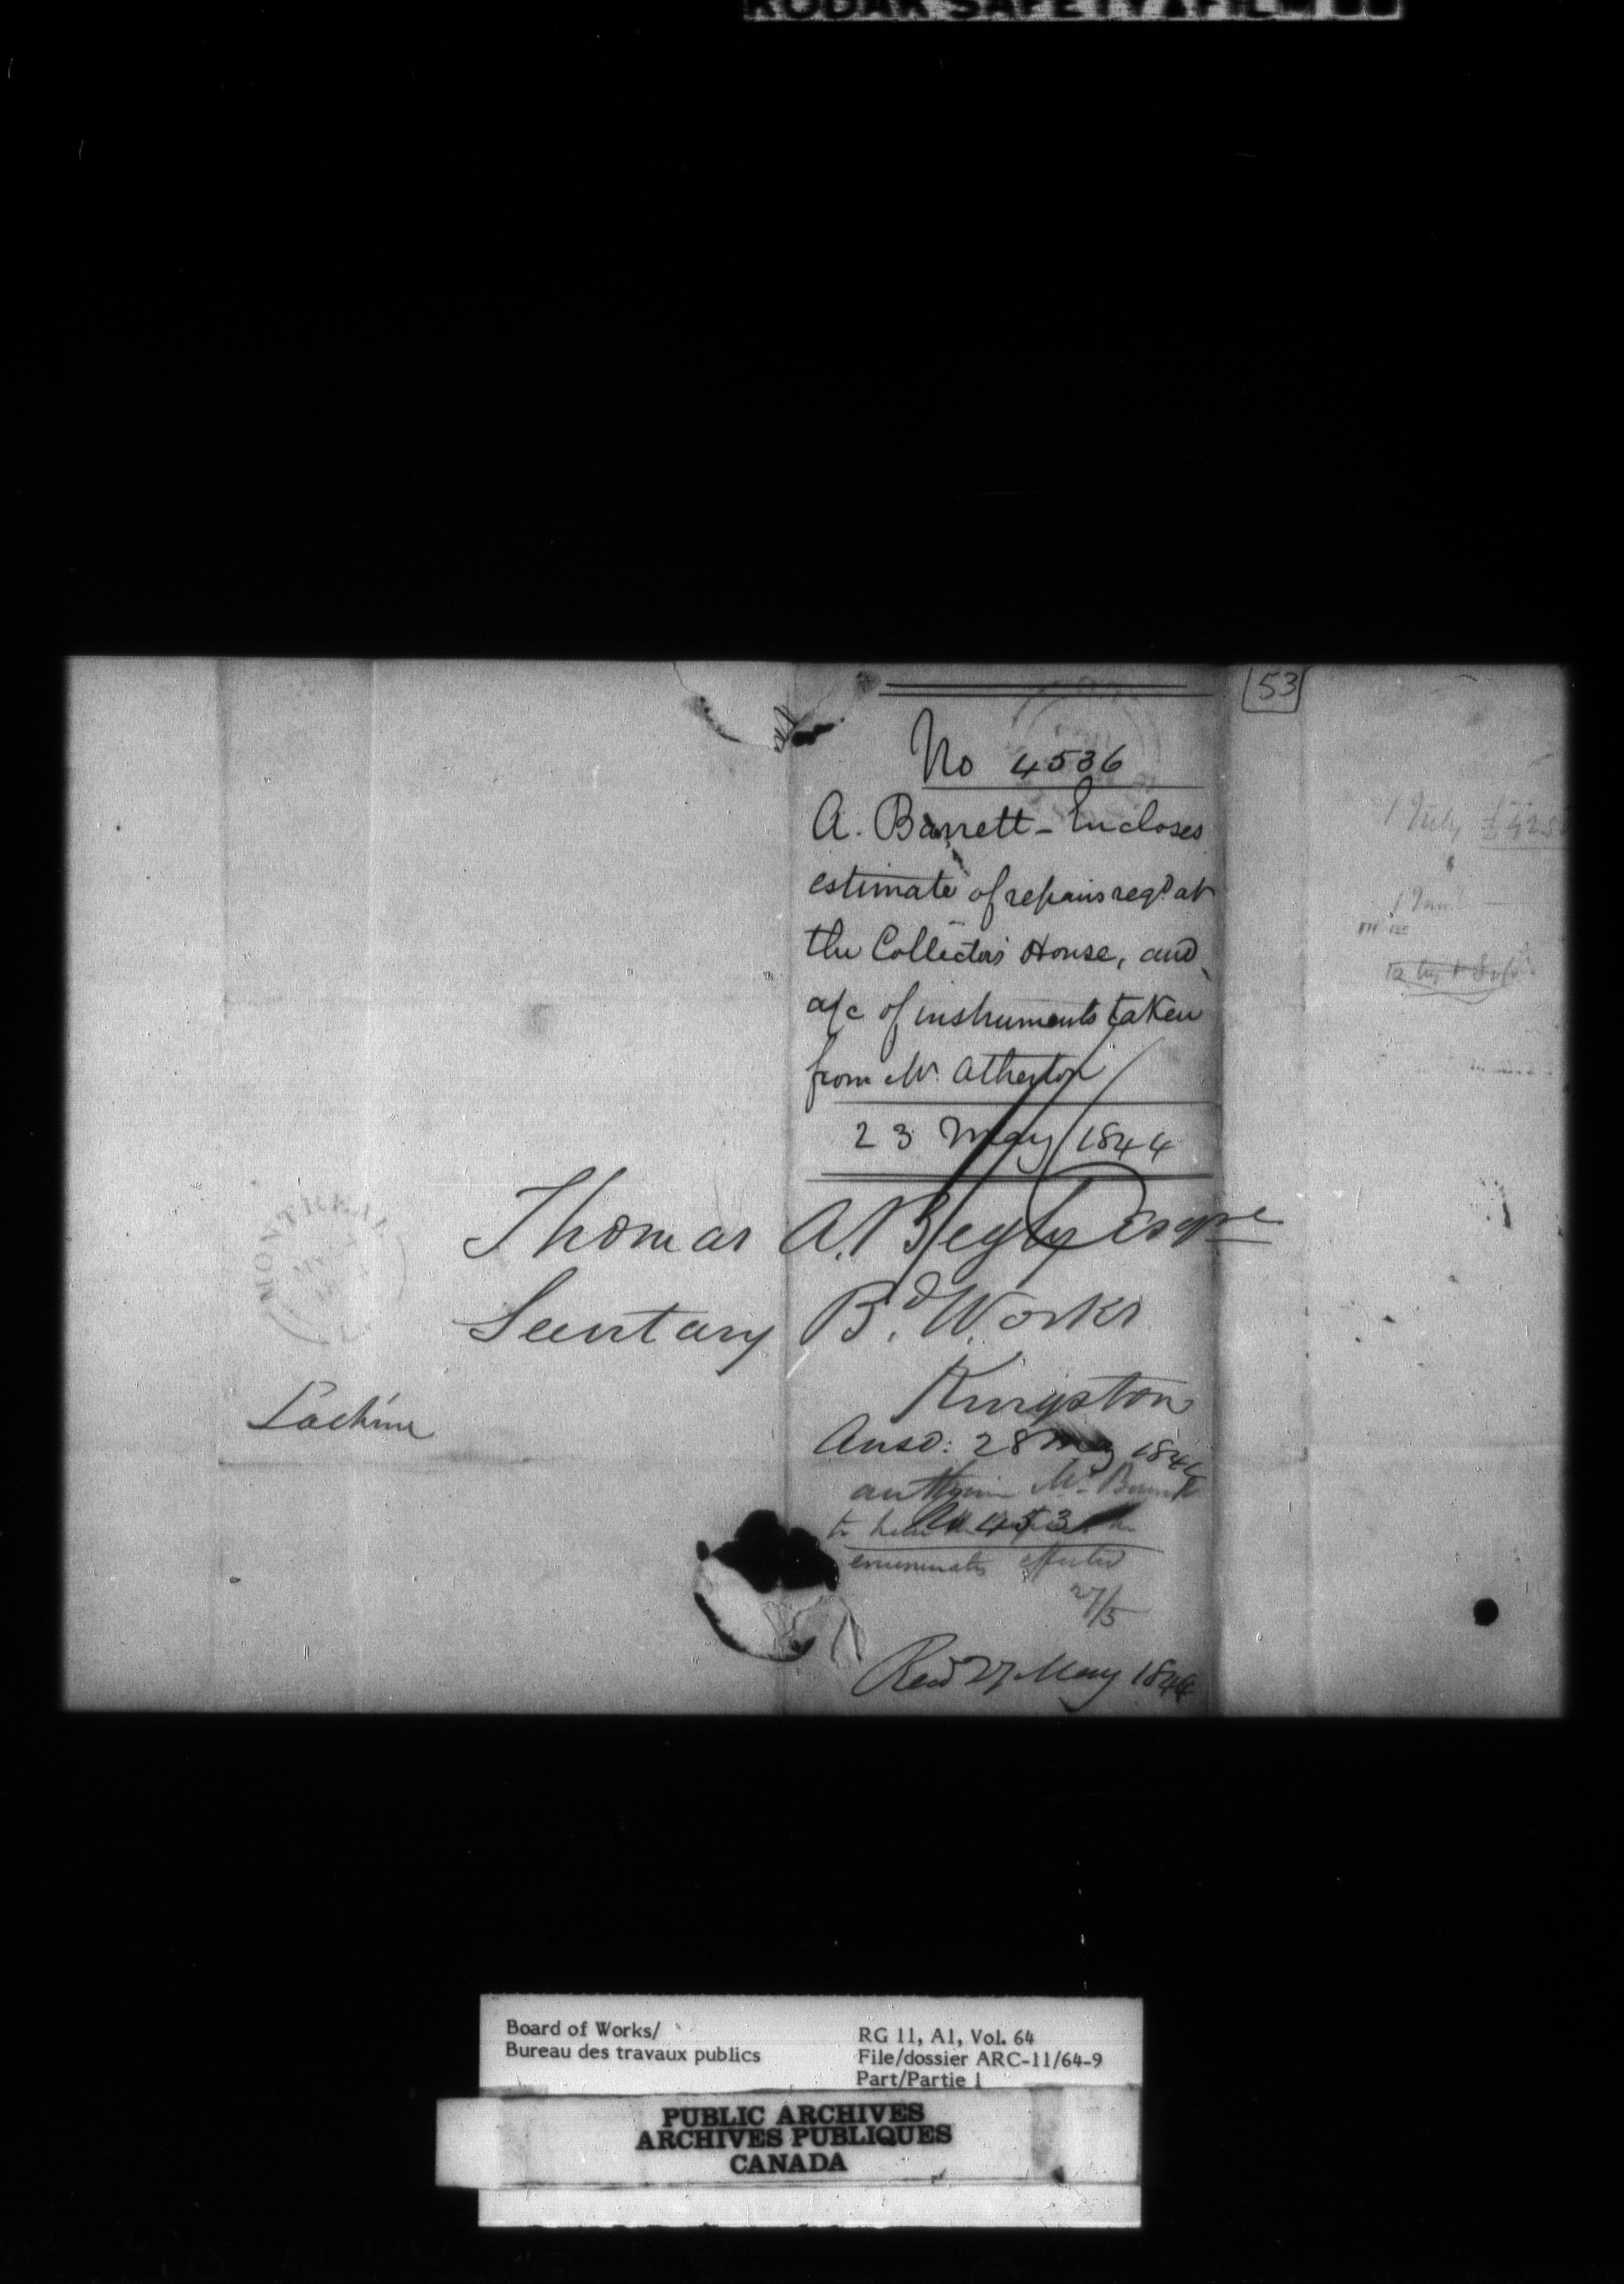 KODAK SAFETY FILM
53
No 4536
A. Barrett - Encloses
estimate of repairs reqd. at
the Collectors House, and
a/c of instruments taken
from Mr. Atherton
23 May 1844
Thomas A. Begly Esqre
Secretary Bd. Works
Kingston
Lachine
MONTREAL
Ansd: 28 May 1844
Mr.
to
effected
27/5
Recd 27 May 1844
1 July
Board of Works/
Bureau des travaux publics
RG 11, A1, Vol. 64
File/dossier ARC-11/64-9
Part/Partie 1
PUBLIC ARCHIVES
ARCHIVES PUBLIQUES
CANADA